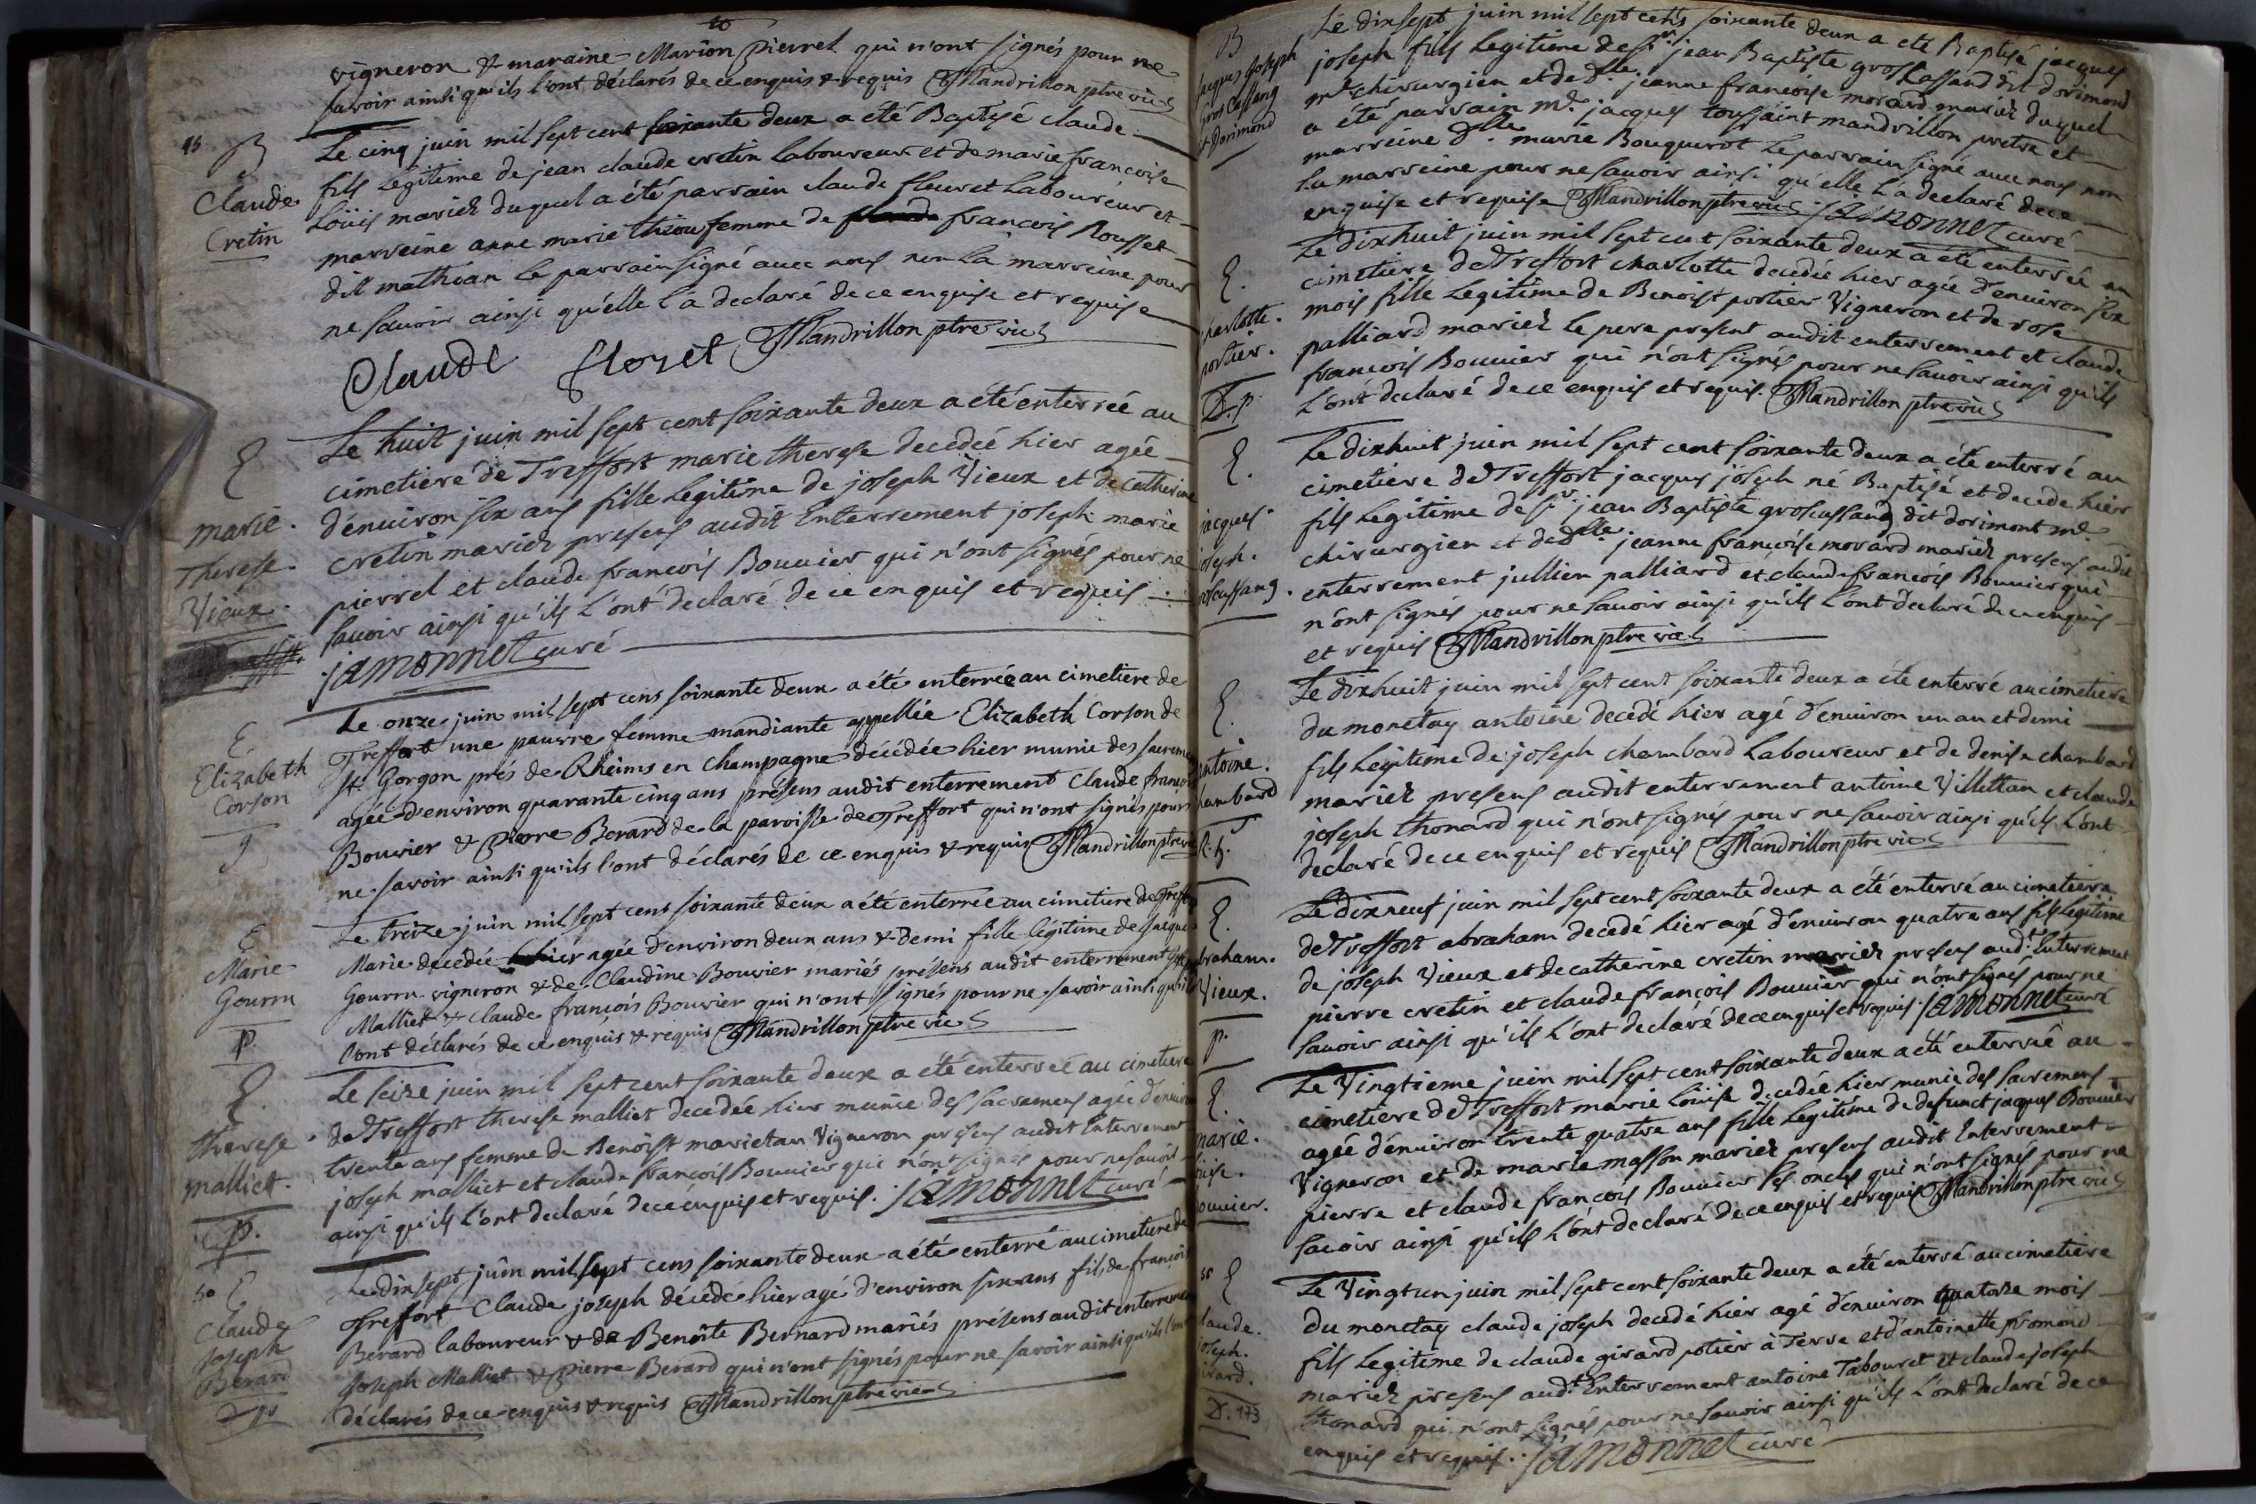 10
vigneron & maraine Marion Pierrel qui n'ont signés pour ne
savoir ainsi qu'ils l'ont déclarés de ce enquis & requis Mandrillon ptre vic
45
B
Claude
Cretin
Le cinq juin mil sept cent soixante deux a été Baptisé claude
fils Legitime de jean claude cretin Laboureur et de marie francoise
Loüis mariez duquel a été parrain claude fleuret Laboureur et
marreine anne marie thiou femme de francois Rousset
dit mathian le parrain signé avec nous non la marreine pour
ne savoir ainsi qu'elle l'a declaré de ce enquise et requise
Claude floret Mandrillon ptre vic
E
marie
Therese
Vieux
Le huit juin mil sept cent soixante deux a été enterreé au
cimetiere de Treffort marie therese decedeé hier ageé
d'enuiron six ans fille Legitime de joseph Vieux et de catherine
cretin mariez presens audit Enterrement joseph marie
pierrel et claude francois Bouuier qui n'ont signés pour ne
sauoir ainsi qu'ils l'ont declaré de ce enquis et requis
jamonnet curé
E
Elizabeth
Corson
g
Le onze juin mil sept cens soixante deux a été enterrée au cimetiere de
Treffort une pauvre femme mandiante appellée Elizabeth Corson de
St. Gorgon prés de Rheims en Champagne décédée hier munie des sacremen
agée d'environ quarante cinq ans présens audit enterrement Claude francois
Bouvier & Pierre Berard de la paroisse de Treffort qui n'ont signés pour
ne savoir ainsi qu'ils l'ont déclarés de ce enquis & requis Mandrillon ptre vic
E
Marie
Gourru
p.
Le treize juin mil sept cens soixante deux a été enterrée au cimetiere de Treffort
Marie decédée hier agée d'environ deux ans & demi fille légitime de Jacques
Gourru vigneron & de Claudine Bouvier mariés présens audit enterrement
Malliet & Claude françois Bouvier qui n'ont signés pour ne savoir ainsi qu'ils
l'ont déclarés de ce enquis & requis Mandrillon ptre vic
E.
therese
malliet.
p.
Le seize juin mil sept cent soixante deux a été enterreé au cimetiere
de Treffort therese malliet decedée hier munie des sacremens agée d'enuiron
trente ans femme de Benoist marietan Vigneron presens audit Enterrement
joseph malliet et claude francois Bouuier qui n'ont signes pour ne sauoir
ainsi qu'ils l'ont declaré de ce enquis et requis. jamonnet curé
50 E
Claude
Joseph
Berard
Le dix sept juin mil sept cens soixante deux a été enterré au cimetiere de
Treffort Claude joseph décédé hier agé d'environ six ans fils de francois
Berard laboureur & de Benoite Bernard mariés présens audit enterrement
Joseph Malliet & Pierre Berard qui n'ont signés pour ne savoir ainsi qu'ils l'ont
déclarés de ce enquis & requis Mandrillon ptre vic
B
jacques joseph
gros Cassang
dit Dorimond
Le dix sept juin mil sept cents soixante deux a eté Baptisé jacques
joseph fils Legitime de Sr. jean Baptiste groscassand dit dorimond
me chirurgien et de dlle. jeanne francoise morard mariez duquel
a été parrain mr. jacques toussaint mandrillon pretre et
marreine dlle. marie Bouquerot Le parrain signé avec nous non
la marreine pour ne sauoir ainsi qu'elle l'a declaré de ce
enquise et requise Mandrillon ptre vic jamonnet curé
E.
charlotte.
portier.
D.p.
Le dixhuit juin mil sept cent soixante deux a été enterreé au
cimetiere de Treffort charlotte decedée hier agée d'enuiron six
mois fille Legitime de Benoist portier Vigneron et de rose
palliard mariez Le pere present audit enterrement et claude
francois Bouuier qui n'ont signés pour ne sauoir ainsi qu'ils
l'ont declaré de ce enquis et requis. Mandrillon ptre vic
E.
jacques
joseph.
Le dixhuit juin mil sept cent soixante deux a été enterré au
cimetiere de Treffort jacques joseph né Baptisé et decede hier
fils Legitime de Sr. jean Baptiste groscassand dit dorimont me.
chirurgien et de dlle. jeanne francoise morard mariez presens audit
enterrement jullien palliard et claude francois Bouuier qui
n'ont signés pour ne sauoir ainsi qu'ils l'ont declaré de ce enquis
et requis Mandrillon ptre vic
E.
antoine.
chambard
Le dixhuit juin mil sept cent soixante deux a été enterré au cimetiere
du monetay antoine decedé hier agé d'enuiron un an et demi
fils Legitime de joseph chambard Laboureur et de denise chambard
mariez presens audit enterrement antoine Villettan et claude
joseph thonard qui n'ont signés pour ne sauoir ainsi qu'ils l'ont
declaré de ce enquis et requis Mandrillon ptre vic
E.
abraham.
Vieux.
p.
Le dixneuf juin mil sept cent soixante deux a été enterré au cimetiere
de Treffort abraham decedé hier agé d'enuiron quatre ans fils Legitime
de joseph Vieux et de catherine cretin mariez presens audt. Enterrement
pierre cretin et claude françois Bouuier qui n'ont signés pour ne
sauoir ainsi qu'ils l'ont declaré de ce enquis et requis jamonnet curé
E.
marie.
loüise.
bouuier.
Le Vingtieme juin mil sept cent soixante deux a été enterreé au
cimetiere de Treffort marie Loüise decedée hier munie des sacremens
agée d'enuiron trente quatre ans fille Legitime de defunct jacques Bouuier
Vigneron et de marie masson mariez presens audit Enterrement
pierre et claude francois Bouuier ses oncles qui n'ont signés pour ne
sauoir ainsi qu'ils l'ont declaré de ce enquis et requis Mandrillon ptre vic
E
claude.
joseph.
girard.
D. 173
Le Vingt un juin mil sept cent soixante deux a été enterré au cimetiere
du monetay claude joseph decedé hier agé d'enuiron quatorze mois
fils Legitime de claude girard potier à Terre et d'antoinette promond
mariez presens audt. Enterrement antoine Tabouret et claude joseph
thonard qui n'ont signés pour ne sauoir ainsi qu'ils l'ont declaré de ce
enquis et requis. jamonnet curé